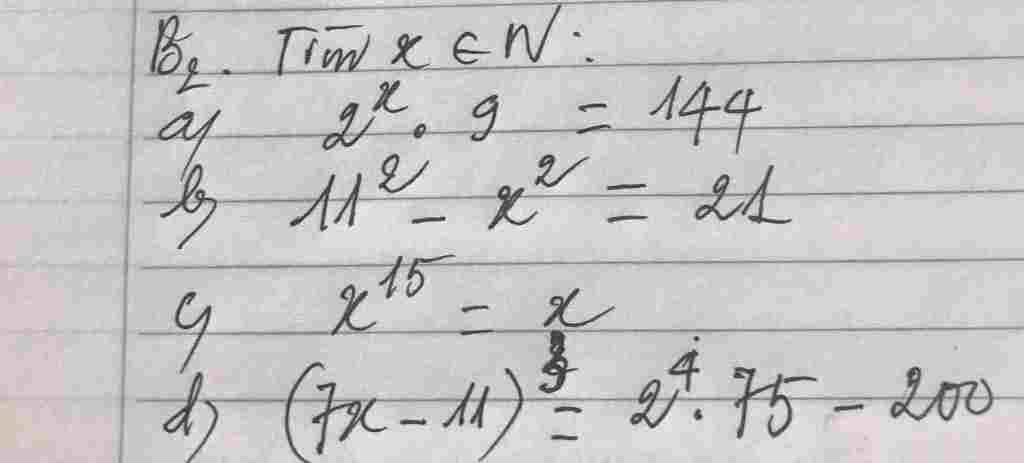 B2. Tìm x ∈ N:
a) 2^x . 9 = 144
b) 11^2 - x^2 = 21
c) x^15 = x
d) (7x - 11)^3 = 2^4 . 75 - 200